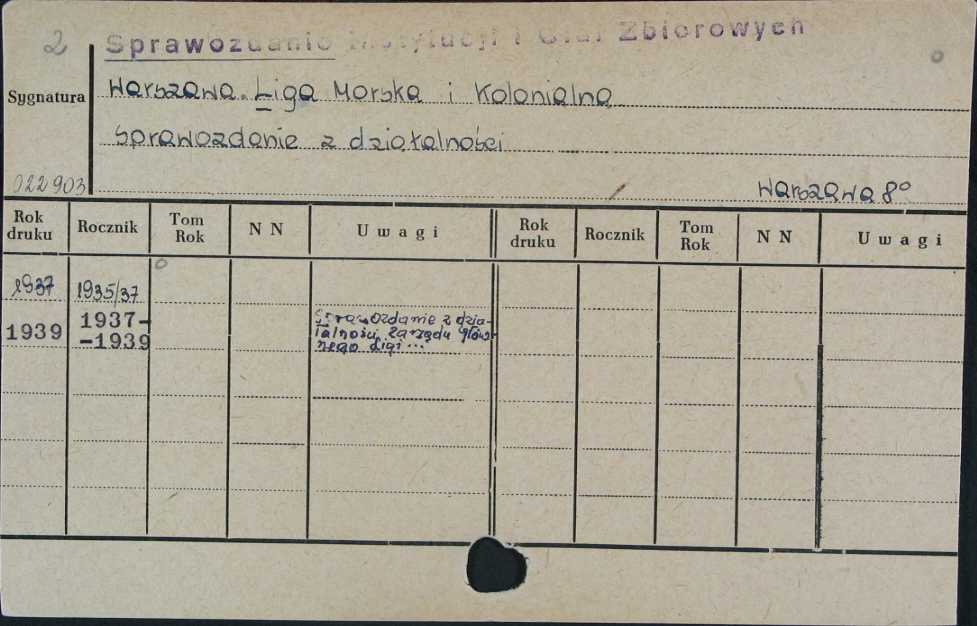 2 Sprawozdanie Instytucji i Ciał Zbiorowych
Sygnatura
Warszawa. Liga Morska i Kolonialna
Sprawozdanie z działalności
022903
Warszawa 8°
Rok druku Rocznik Tom Rok N N Uwagi Rok druku Rocznik Tom Rok N N Uwagi
1937 1935/37
1939 1937-
-1939
Sprawozdanie z dzia-
łalności Zarządu głów-
nego Ligi ...